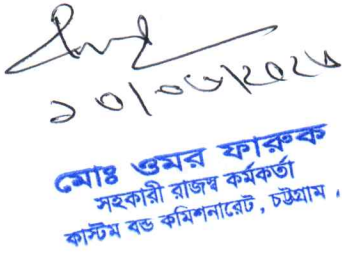 মোঃ ওমর ফারুক
সহকারী রাজস্ব কর্মকর্তা
কাস্টম বন্ড কমিশনারেট, চট্টগ্রাম।